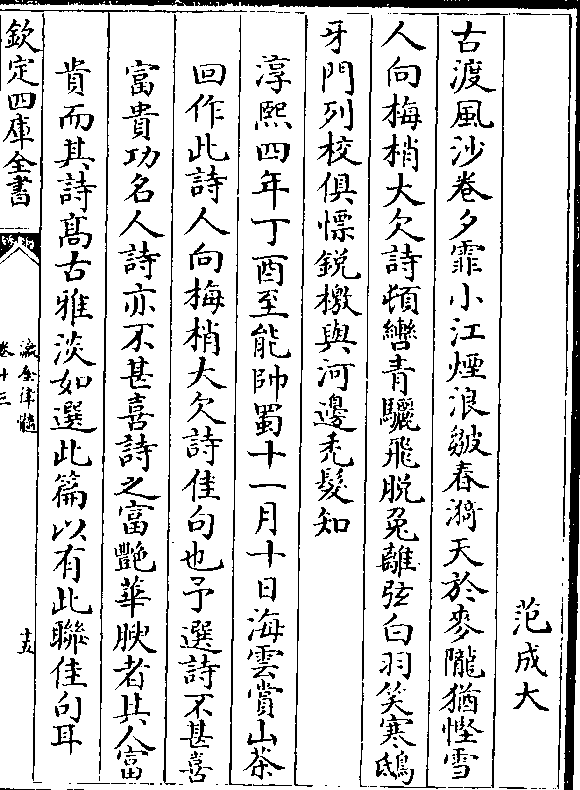 范成大
古渡風沙卷夕霏小江煙浪皺春漪天於麥隴猶慳雪
人向梅梢大欠詩頓轡青驪飛脱兔離弦白羽笑寒鴟
牙門列校俱慓鋭檄與河邊禿髮知
淳熙四年丁酉至能帥蜀十一月十日海雲賞山茶
回作此詩人向梅梢大欠詩佳句也予選詩不甚喜
富貴功名人詩亦不甚喜詩之富艷華腴者其人富
貴而其詩髙古雅淡如選此篇以有此聯佳句耳
欽定四庫全書
瀛奎律髓
卷十三
十五